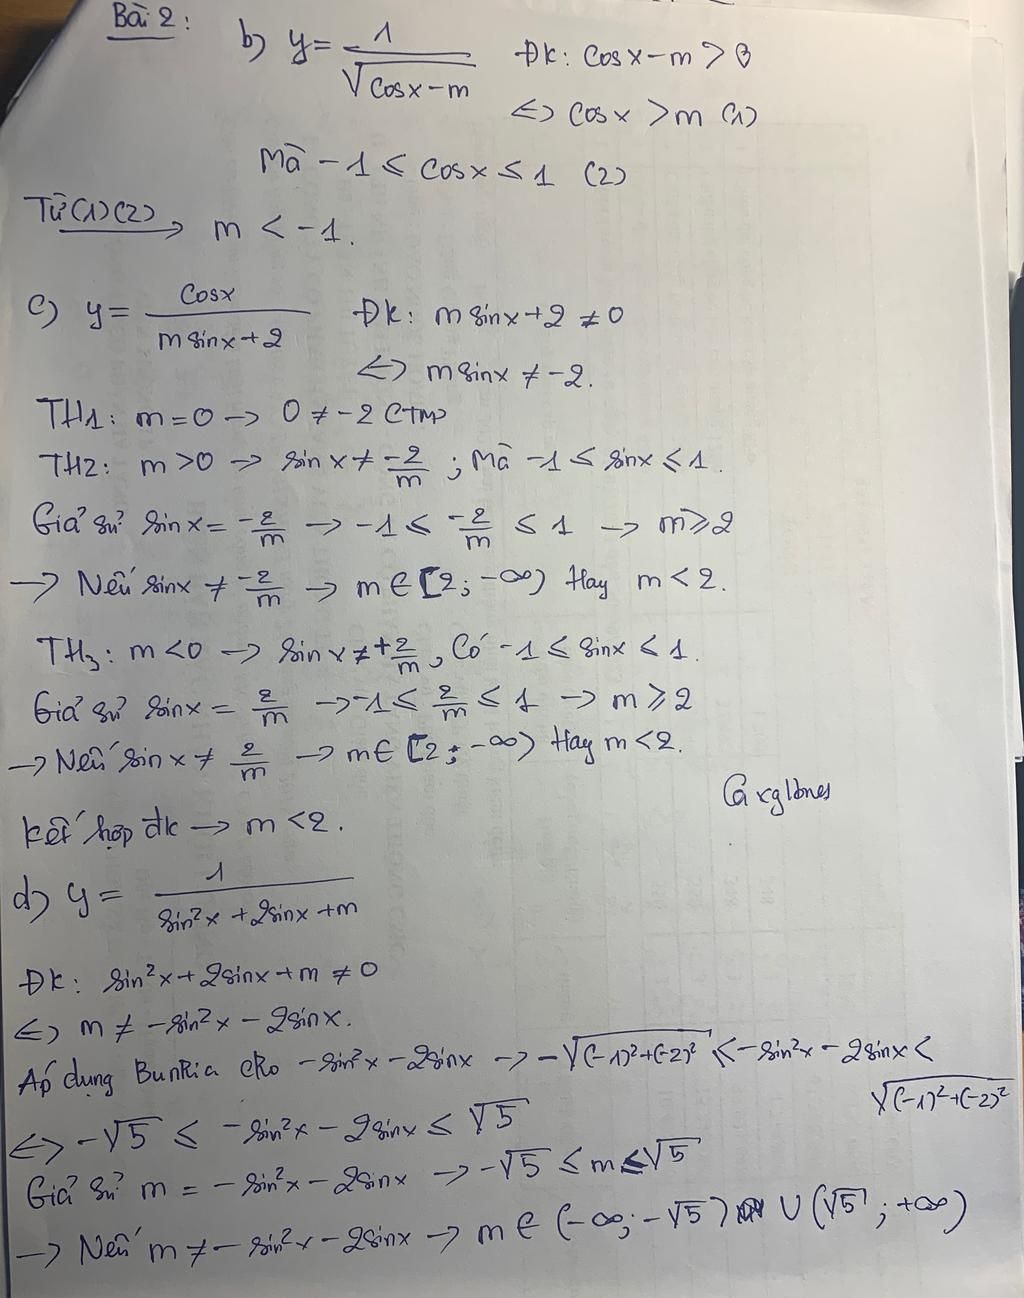 Bài 2:
b) y = 1/√(cosx - m)   Đk: cosx - m > 0
<=> cosx > m (1)
Mà -1 ≤ cosx ≤ 1 (2)
Từ (1)(2) → m < -1.
c) y = cosx/(m sinx + 2)   Đk: m sinx + 2 ≠ 0
<=> m sinx ≠ -2.
TH1: m = 0 → 0 ≠ -2 (TM)
TH2: m > 0 → sinx ≠ -2/m ; Mà -1 ≤ sinx ≤ 1.
Giả sử sinx = -2/m → -1 ≤ -2/m ≤ 1 → m ≥ 2
→ Nếu sinx ≠ -2/m → m ∈ [2; -∞) Hay m < 2.
TH3: m < 0 → sinx ≠ +2/m, Có -1 ≤ sinx ≤ 1.
Giả sử sinx = 2/m → -1 ≤ 2/m ≤ 1 → m ≥ 2
→ Nếu sinx ≠ 2/m → m ∈ [2; -∞) Hay m < 2.
Kết hợp đk → m < 2.
d) y = 1/(sin²x + 2sinx + m)
Đk: sin²x + 2sinx + m ≠ 0
<=> m ≠ -sin²x - 2sinx.
Áp dụng Bunhia cho -sin²x - 2sinx → -√((-1)²+(-2)²) ≤ -sin²x - 2sinx <
√((-1)²+(-2)²)
<=> -√5 ≤ -sin²x - 2sinx ≤ √5
Giả sử m = -sin²x - 2sinx → -√5 ≤ m ≤ √5
→ Nếu m ≠ -sin²x - 2sinx → m ∈ (-∞; -√5) ∪ (√5; +∞)